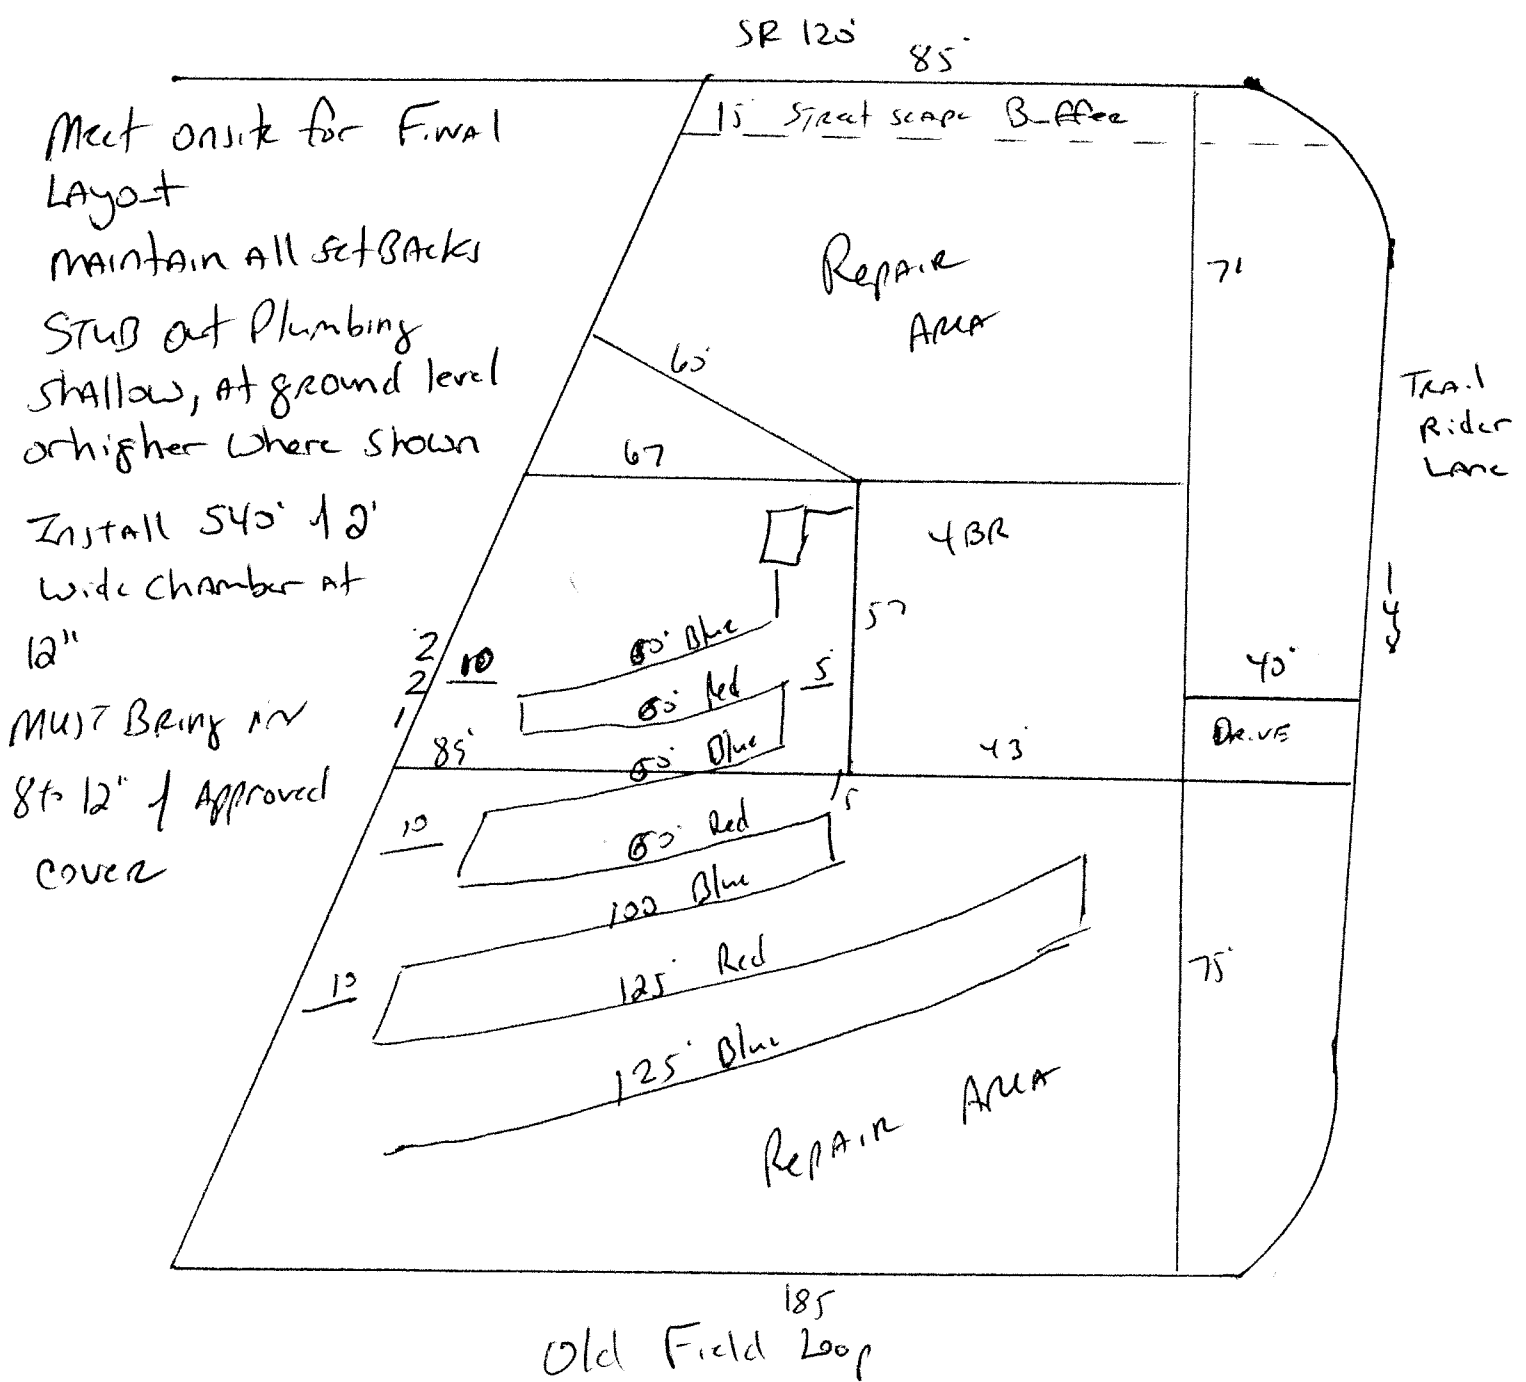 SR 120'
85'
15 Streetscape Buffer
Meet onsite for Final
Layout
Maintain All setBacks
STUB out Plumbing
shallow, At ground level
or higher where shown
Install 540' of 2'
wide chamber At
12"
MUST Bring in
8 to 12" of Approved
cover
Repair
Area
71
Trail
Rider
Lane
60'
67
4BR
57
40'
Drive
43'
2
2
1
10
60' Blue
60' Red
5
85'
60' Blue
10
60' Red
5
100 Blue
10
125' Red
75'
125' Blue
Repair Area
185
Old Field Loop